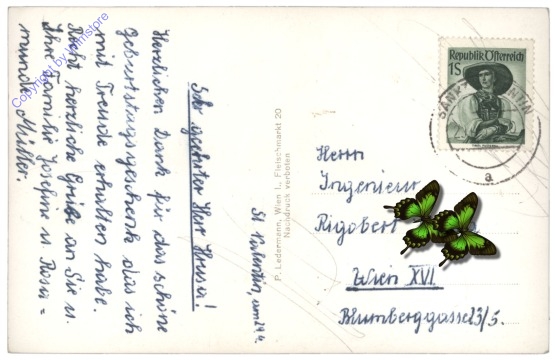 Sehr geehrter Herr Hrusa!
Herzlichen Dank für das schöne
Geburtstagsgeschenk das ich
mit Freude erhalten habe.
Recht herzliche Grüße an Sie u.
Ihre Familie Josefine u. Rosa =
munde Müller.
St. Valentin, am 29.4.
P. Ledermann, Wien I., Fleischmarkt 20
Nachdruck verboten
Republik Österreich
1S
SANKT VALENTIN
a
Herrn
Ingenieur
Rigobert
Wien XVI.
Blumberggasse 23/5.
Copyright by Letnistore